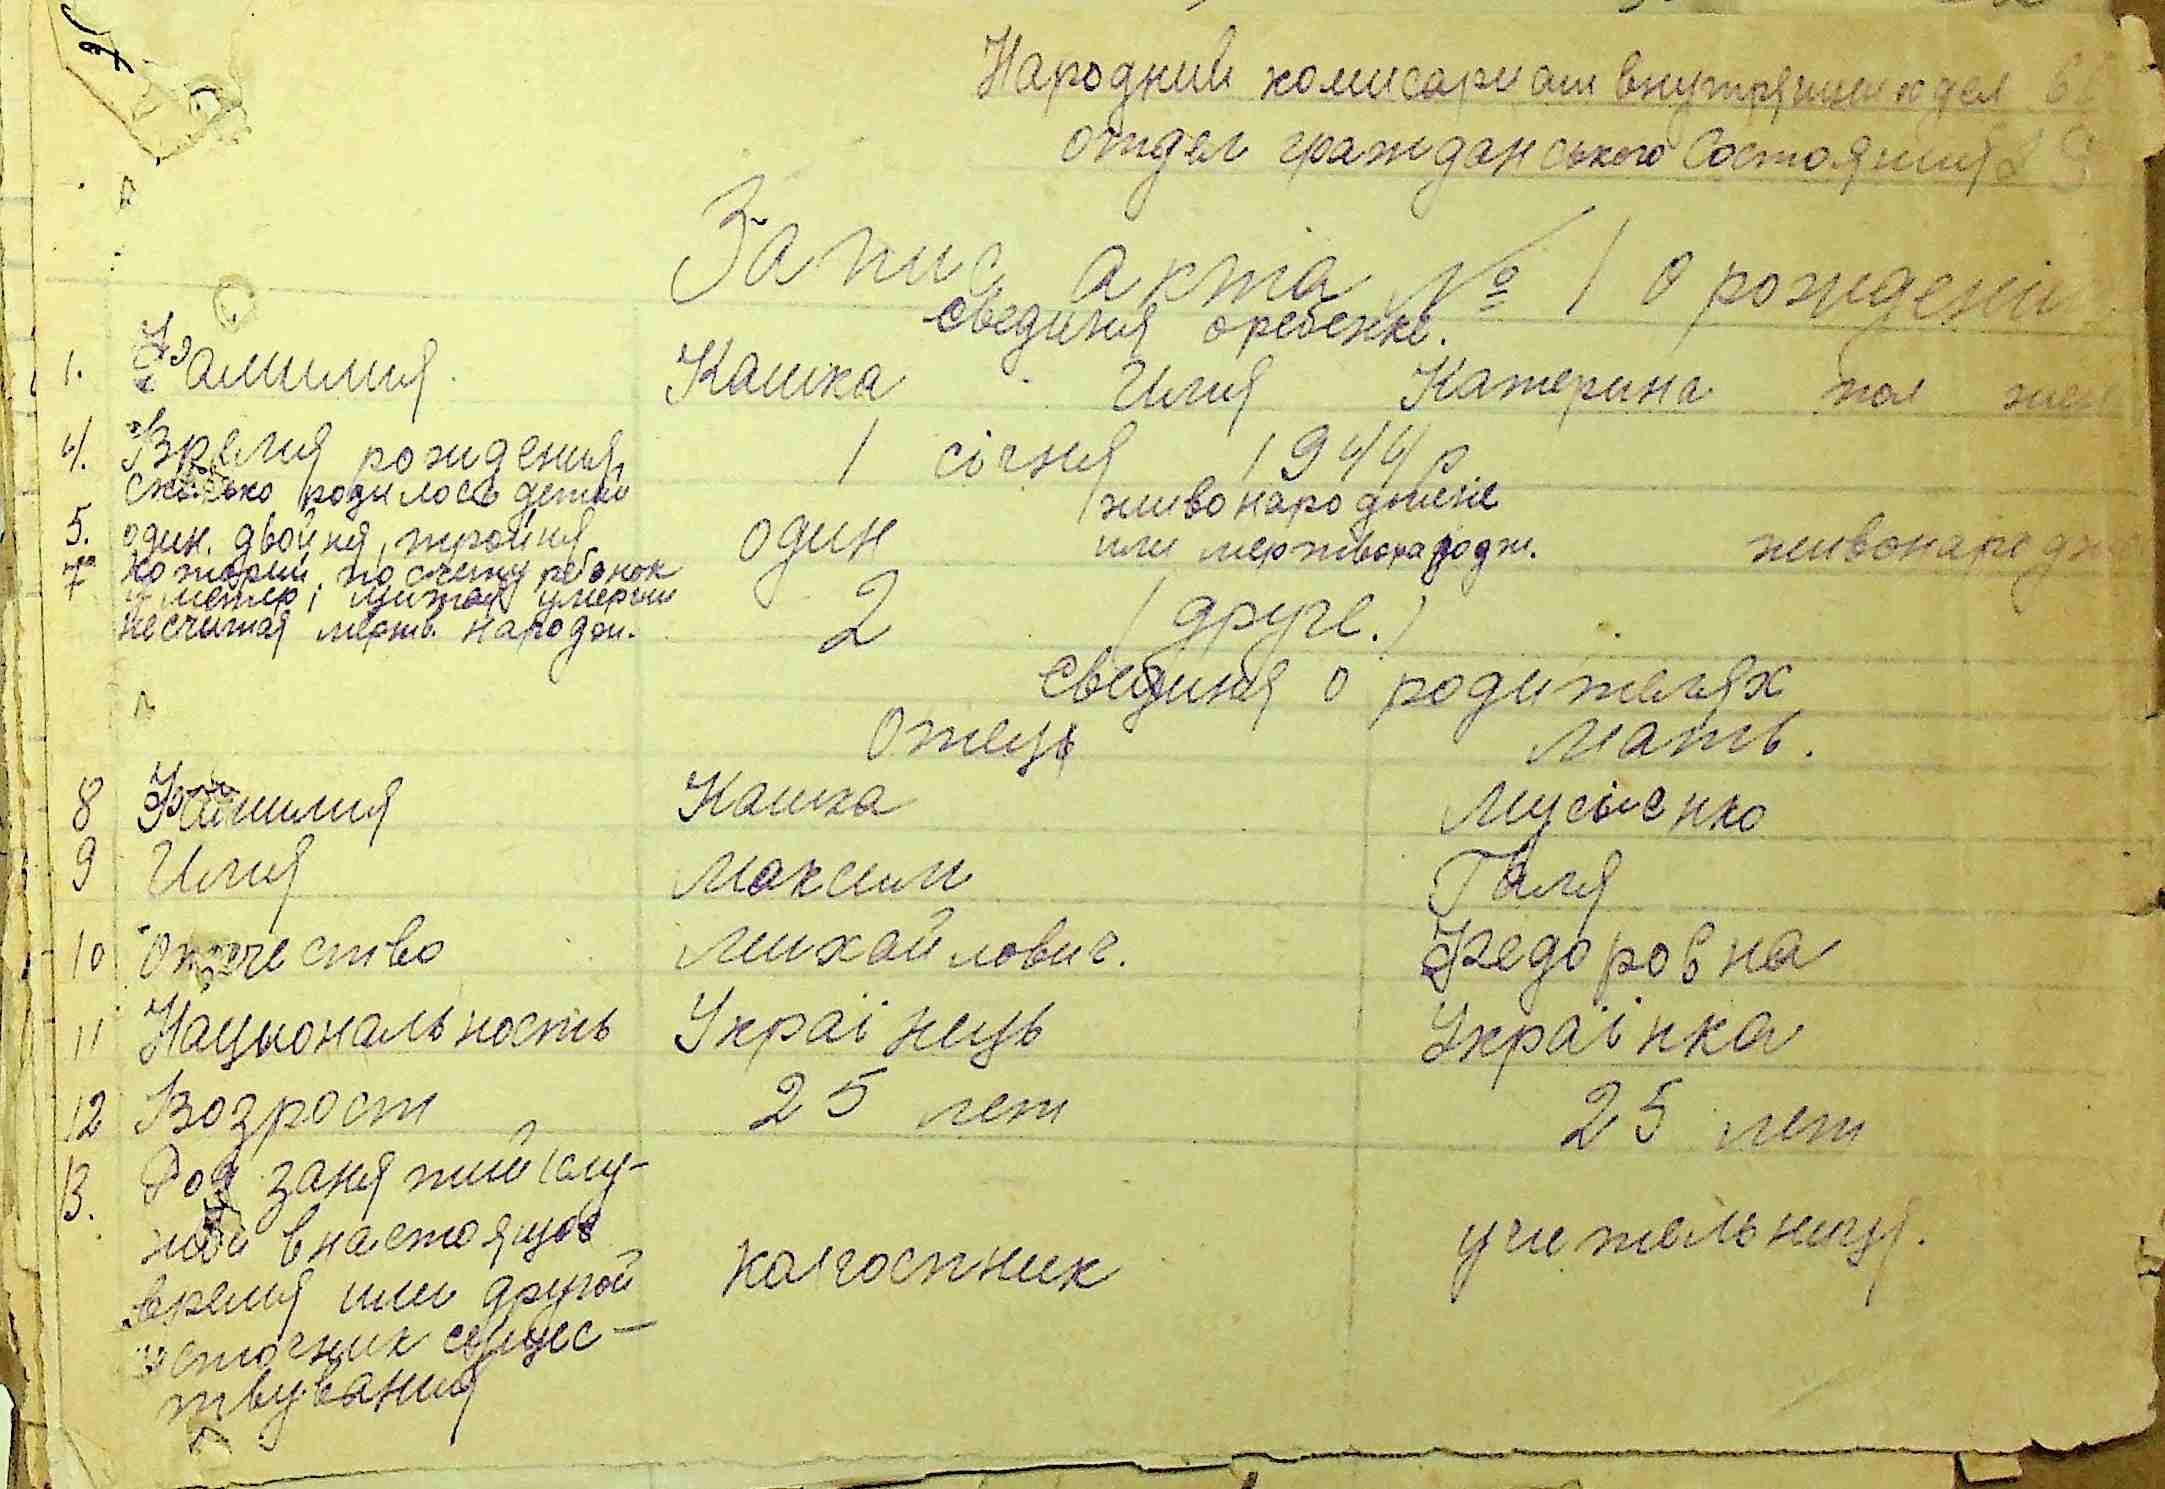 Народний комисариат внутряних дел
отдел гражданського Состояния
Запис акта № 1 о рождении
свединия о ребенке.
1. Фамилия Кашка Имя Катерина пол жен
4. Время рождения 1 січня 1944 р
сколько родилось детей живонароджене
5. один. двойня, тройня один или мертвонародж. живонародж
7 которий по счету ребонок
считая умерши 2 (друге.)
несчитая мертв. народж.
свединия о родителях
Отець Мать.
8 Фамилия Кашка Мусіенко
9 Имя Максим Галя
10 Отечество Михайлович. Федоровна
11 Национальность Українець Українка
12 Возрост 25 лет 25 лет
13. Род занятий (слу-
жби в настоящое
время или другой колгоспник учительниця.
источник сущес-
твування